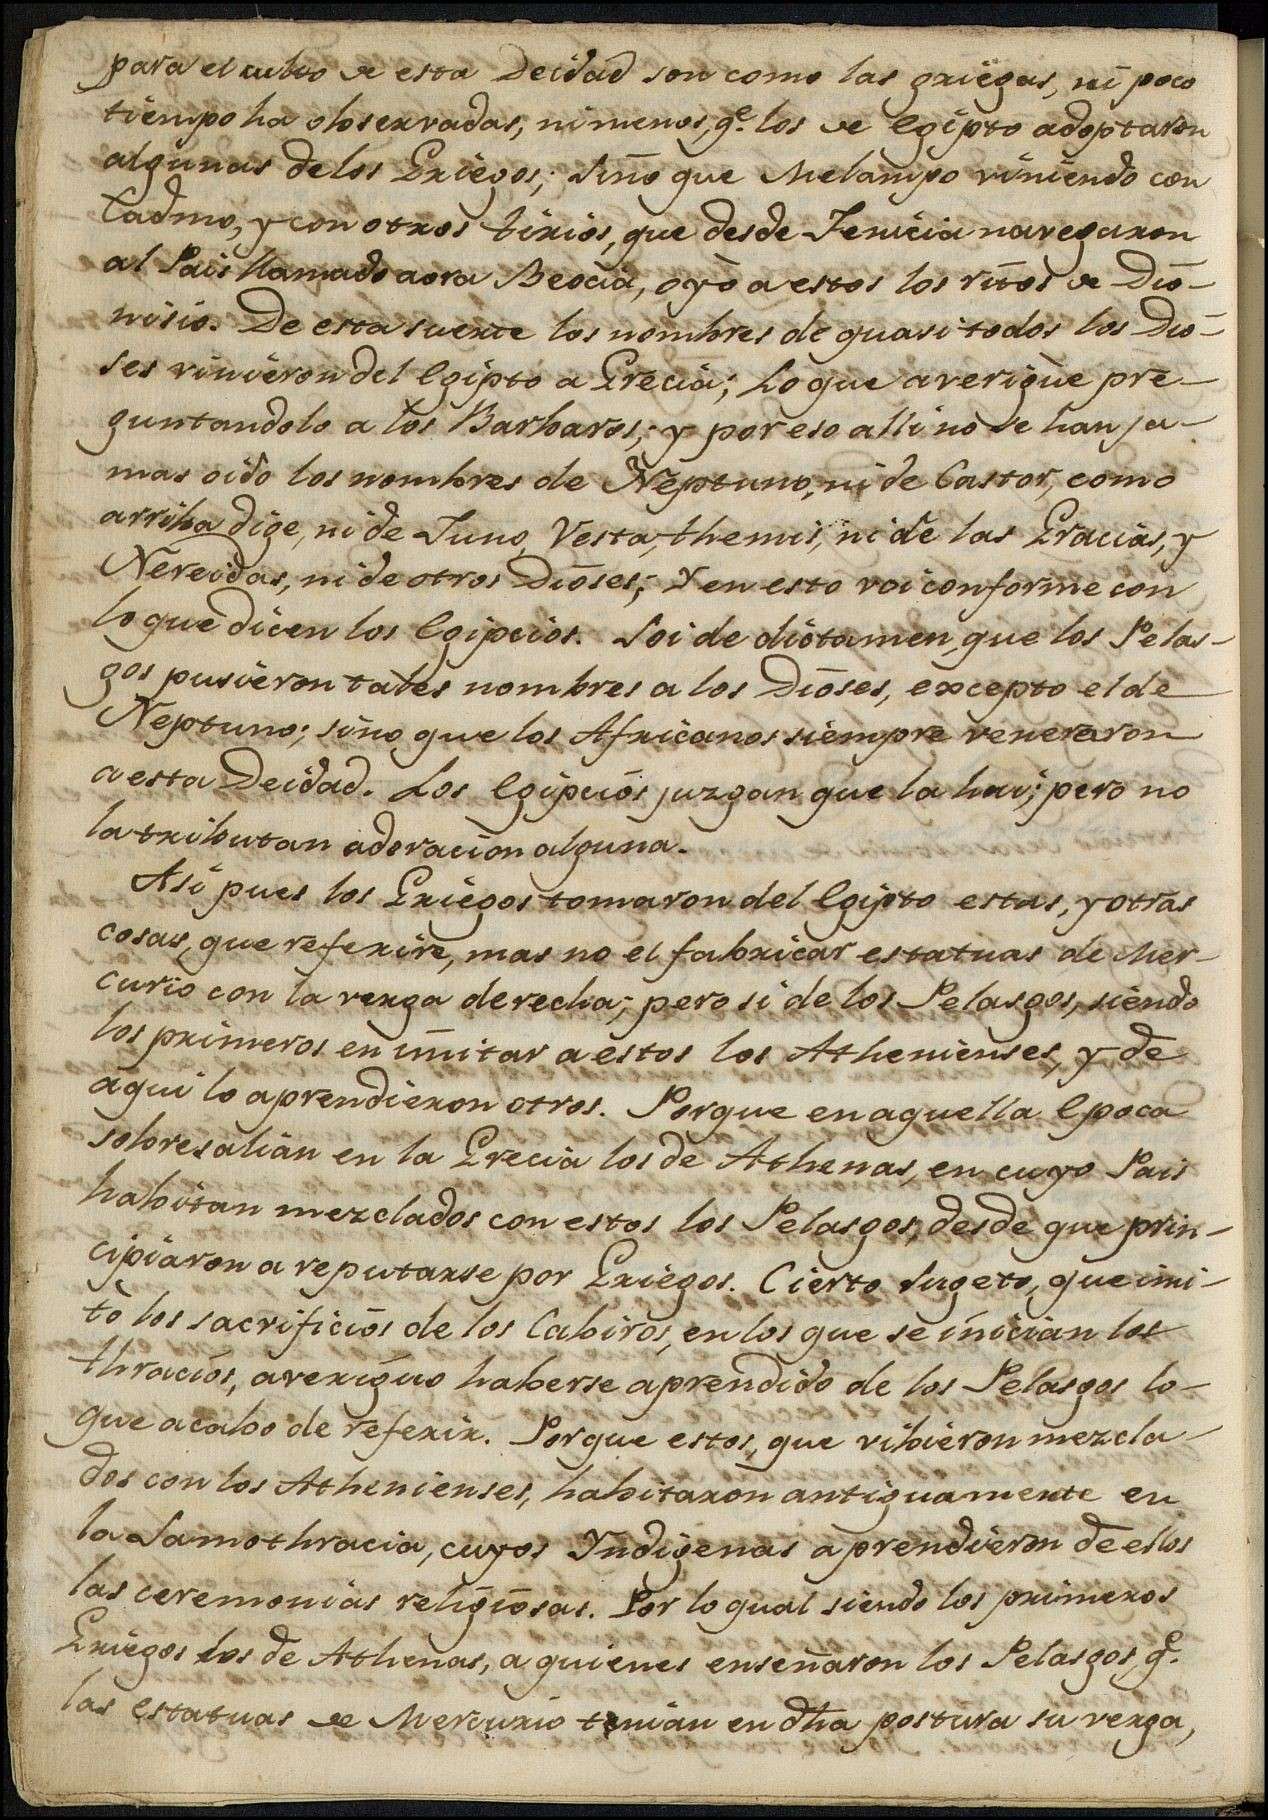 para el culto de esta Deidad son como las griegas, ni poco
tiempo ha observadas, ni menos, q.e los de Egipto adoptaron
algunas de los Griegos; Sino que Melampo viniendo con
Cadmo, y con otros tirios, que desde Fenicia navegaron
al Pais llamado aora Beocia, oyò a estos los ritos de Dio-
nisio. De esta suerte los nombres de quasi todos los Dio-
ses vinieron del Egipto a Grecia; Lo que averigùe pre-
guntandolo a los Barbaros; y por eso alli no se han ja-
mas oido los nombres de Neptuno, ni de Castor, como
arriba dige, ni de Juno, Vesta, themis, ni de las Gracias, y
Nereidas, ni de otros Dioses; Y en esto voi conforme con
lo que dicen los Egipcios. Soi de dictamen, que los Pelas-
gos pusieron tales nombres a los Dioses, excepto el de
Neptuno; sino que los Africanos siempre veneraron
a esta Deidad. Los Egipcios juzgan que la hai; pero no
la tributan adoracion alguna.
Asi pues los Griegos tomaron del Egipto estas, y otras
cosas, que referire, mas no el fabricar estatuas de Mer-
curio con la verga derecha; pero si de los Pelasgos, siendo
los primeros en imitar a estos los Athenienses, y de
aqui lo aprendieron otros. Porque en aquella Epoca
sobresalian en la Grecia los de Athenas, en cuyo Pais
habitan mezclados con estos los Pelasgos, desde que prin-
cipiaron a reputarse por Griegos. Cierto Sugeto, que imi-
tò los sacrificios de los Cabiros, en los que se inician los
thracios, averiguo haberse aprendido de los Pelasgos lo-
que acabo de referir. Porque estos, que vibieron mezcla-
dos con los Athenienses, habitaron antiguamente en
la Samothracia, cuyos Yndigenas aprendieron de ellos
las ceremonias religiosas. Por lo qual siendo los primeros
Griegos los de Athenas, a quienes enseñaron los Pelasgos, q.e
las estatuas de Mercurio tenian en dha postura su verga,